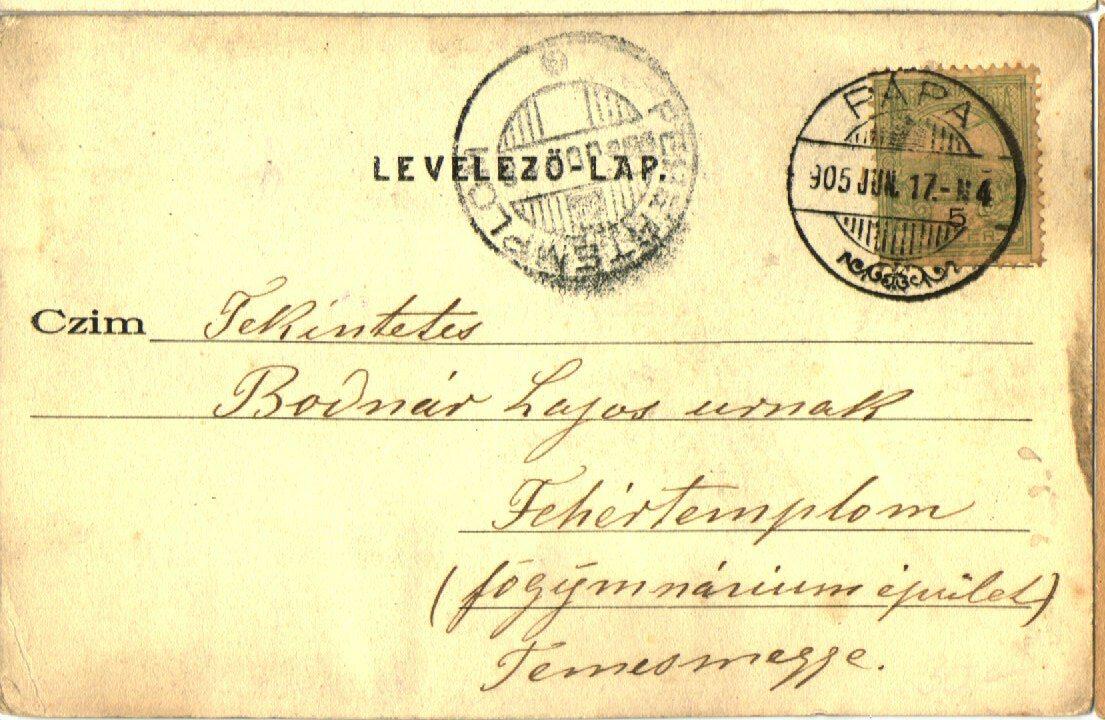 LEVELEZŐ-LAP.
FEHÉRTEMPLOM
PÁPA
905 JUN. 17.-N 4
5
Czim Tekintetes
Bodnár Lajos urnak
Fehértemplom
(főgymnárium épület)
Temesmegye.